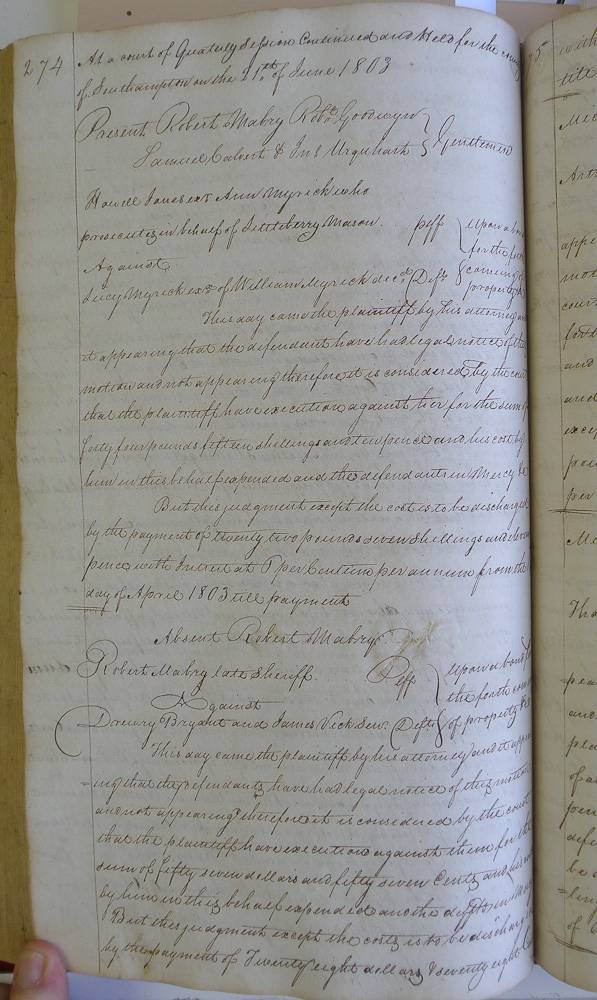 274
At a court of Quaterly Session Continued and Held for the county
of Southampton on the 21st of June 1803
Present Robert Mabry Robt. Goodwyn
Samuel Calvert & Jns Urquhart } Gentlemen
Howell Jones exr Ann Myrick who
prosecutes in behalf of Littleberry Mason. peff } Upon a bond
for the forth
Against coming of
Lucy Myrick exx of William Myrick decd. Deft. property &c
This day came the plaintiff by his attorney and
it appearing that the defendant have had legal notice of this
motion and not appearing therefore it is considered by the court
that the plaintiff have execution against her for the sum of
forty four pounds fifteen shillings and ten pence and his cost by
him in this behalf expended and the defendant in Mercy &c
But this judgment except the cost is to be discharged
by the payment of twenty two pounds seven shillings and eleven
pence with Interest at 5 per Centum per annum from the
day of April 1803 till payment
Absent Robert Mabry
Robert Mabry late Sheriff. Peff } Upon a bond for
Against the forth coming
Drewry Bryant and James Vick Senr. Defts } of property &c
This day came the plaintiff by his attorney and it appear
=ing that the defendants have had legal notice of this motion
and not appearing therefore it is considered by the court
that the plaintiff have execution against them for the
sum of fifty seven dollars and fifty seven Cents and his costs
by him in this behalf expended and the defts in Mercy
But this judgment except the costs is to be discharged
by the payment of Twenty eight dollars & seventy eight